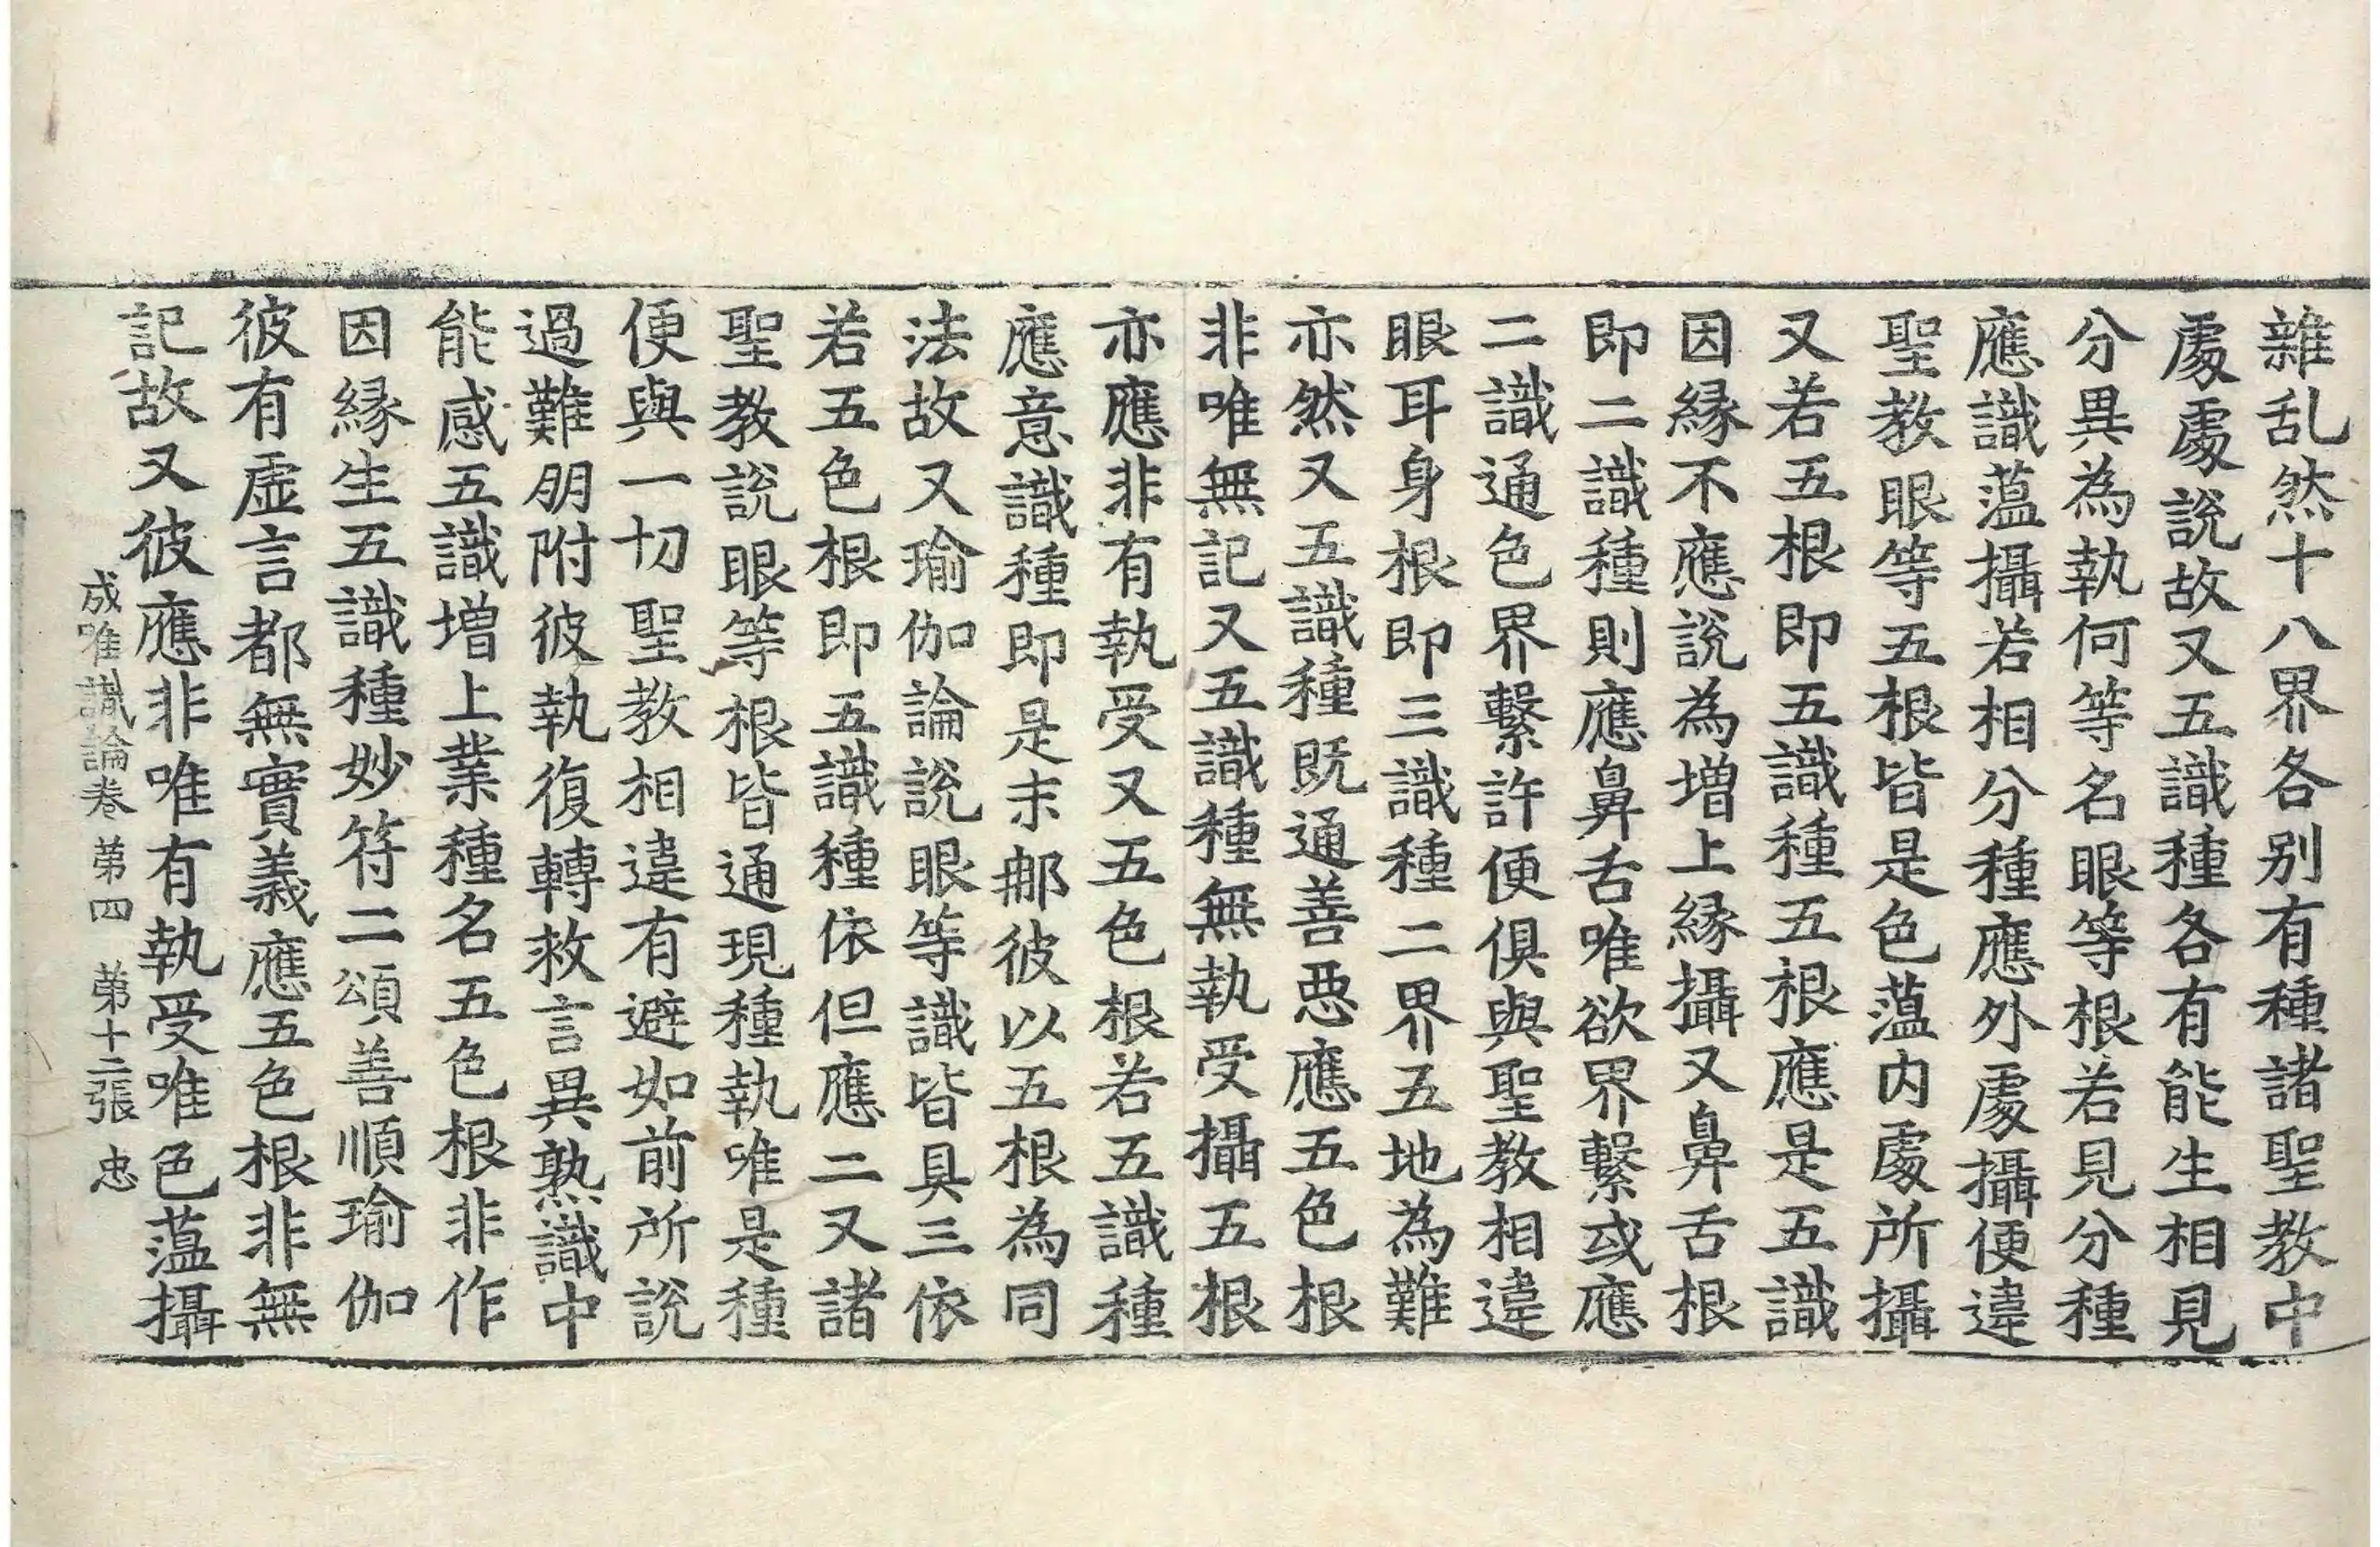 雜乱然十八界各别有種諸聖教中
處處說故又五識種各有能生相見
分異為執何等名眼等根若見分種
應識蘊攝若相分種應外處攝便違
聖教眼等五根皆是色蘊内處所攝
又若五根即五識種五根應是五識
因緣不應說為增上緣攝又鼻舌根
即二識種則應鼻舌唯欲界繫或應
二識通色界繫許便俱與聖教相違
眼耳身根即三識種二界五地為難
亦然又五識種既通善惡應五色根
非唯無記又五識種無執受攝五根
亦應非有執受又五色根若五識種
應意識種即是末那彼以五根為同
法故又瑜伽論說眼等識皆具三依
若五色根即五識種依但應二又諸
聖教說眼等根皆通現種執唯是種
便與一切聖教相違有避如前所說
過難朋附彼執復轉救言異熟識中
能感五識增上業種名五色根非作
因緣生五識種妙符二頌善順瑜伽
彼有虛言都無實義應五色根非無
記故又彼應非唯有執受唯色蘊攝
成唯識論卷第四 第十二張 忠